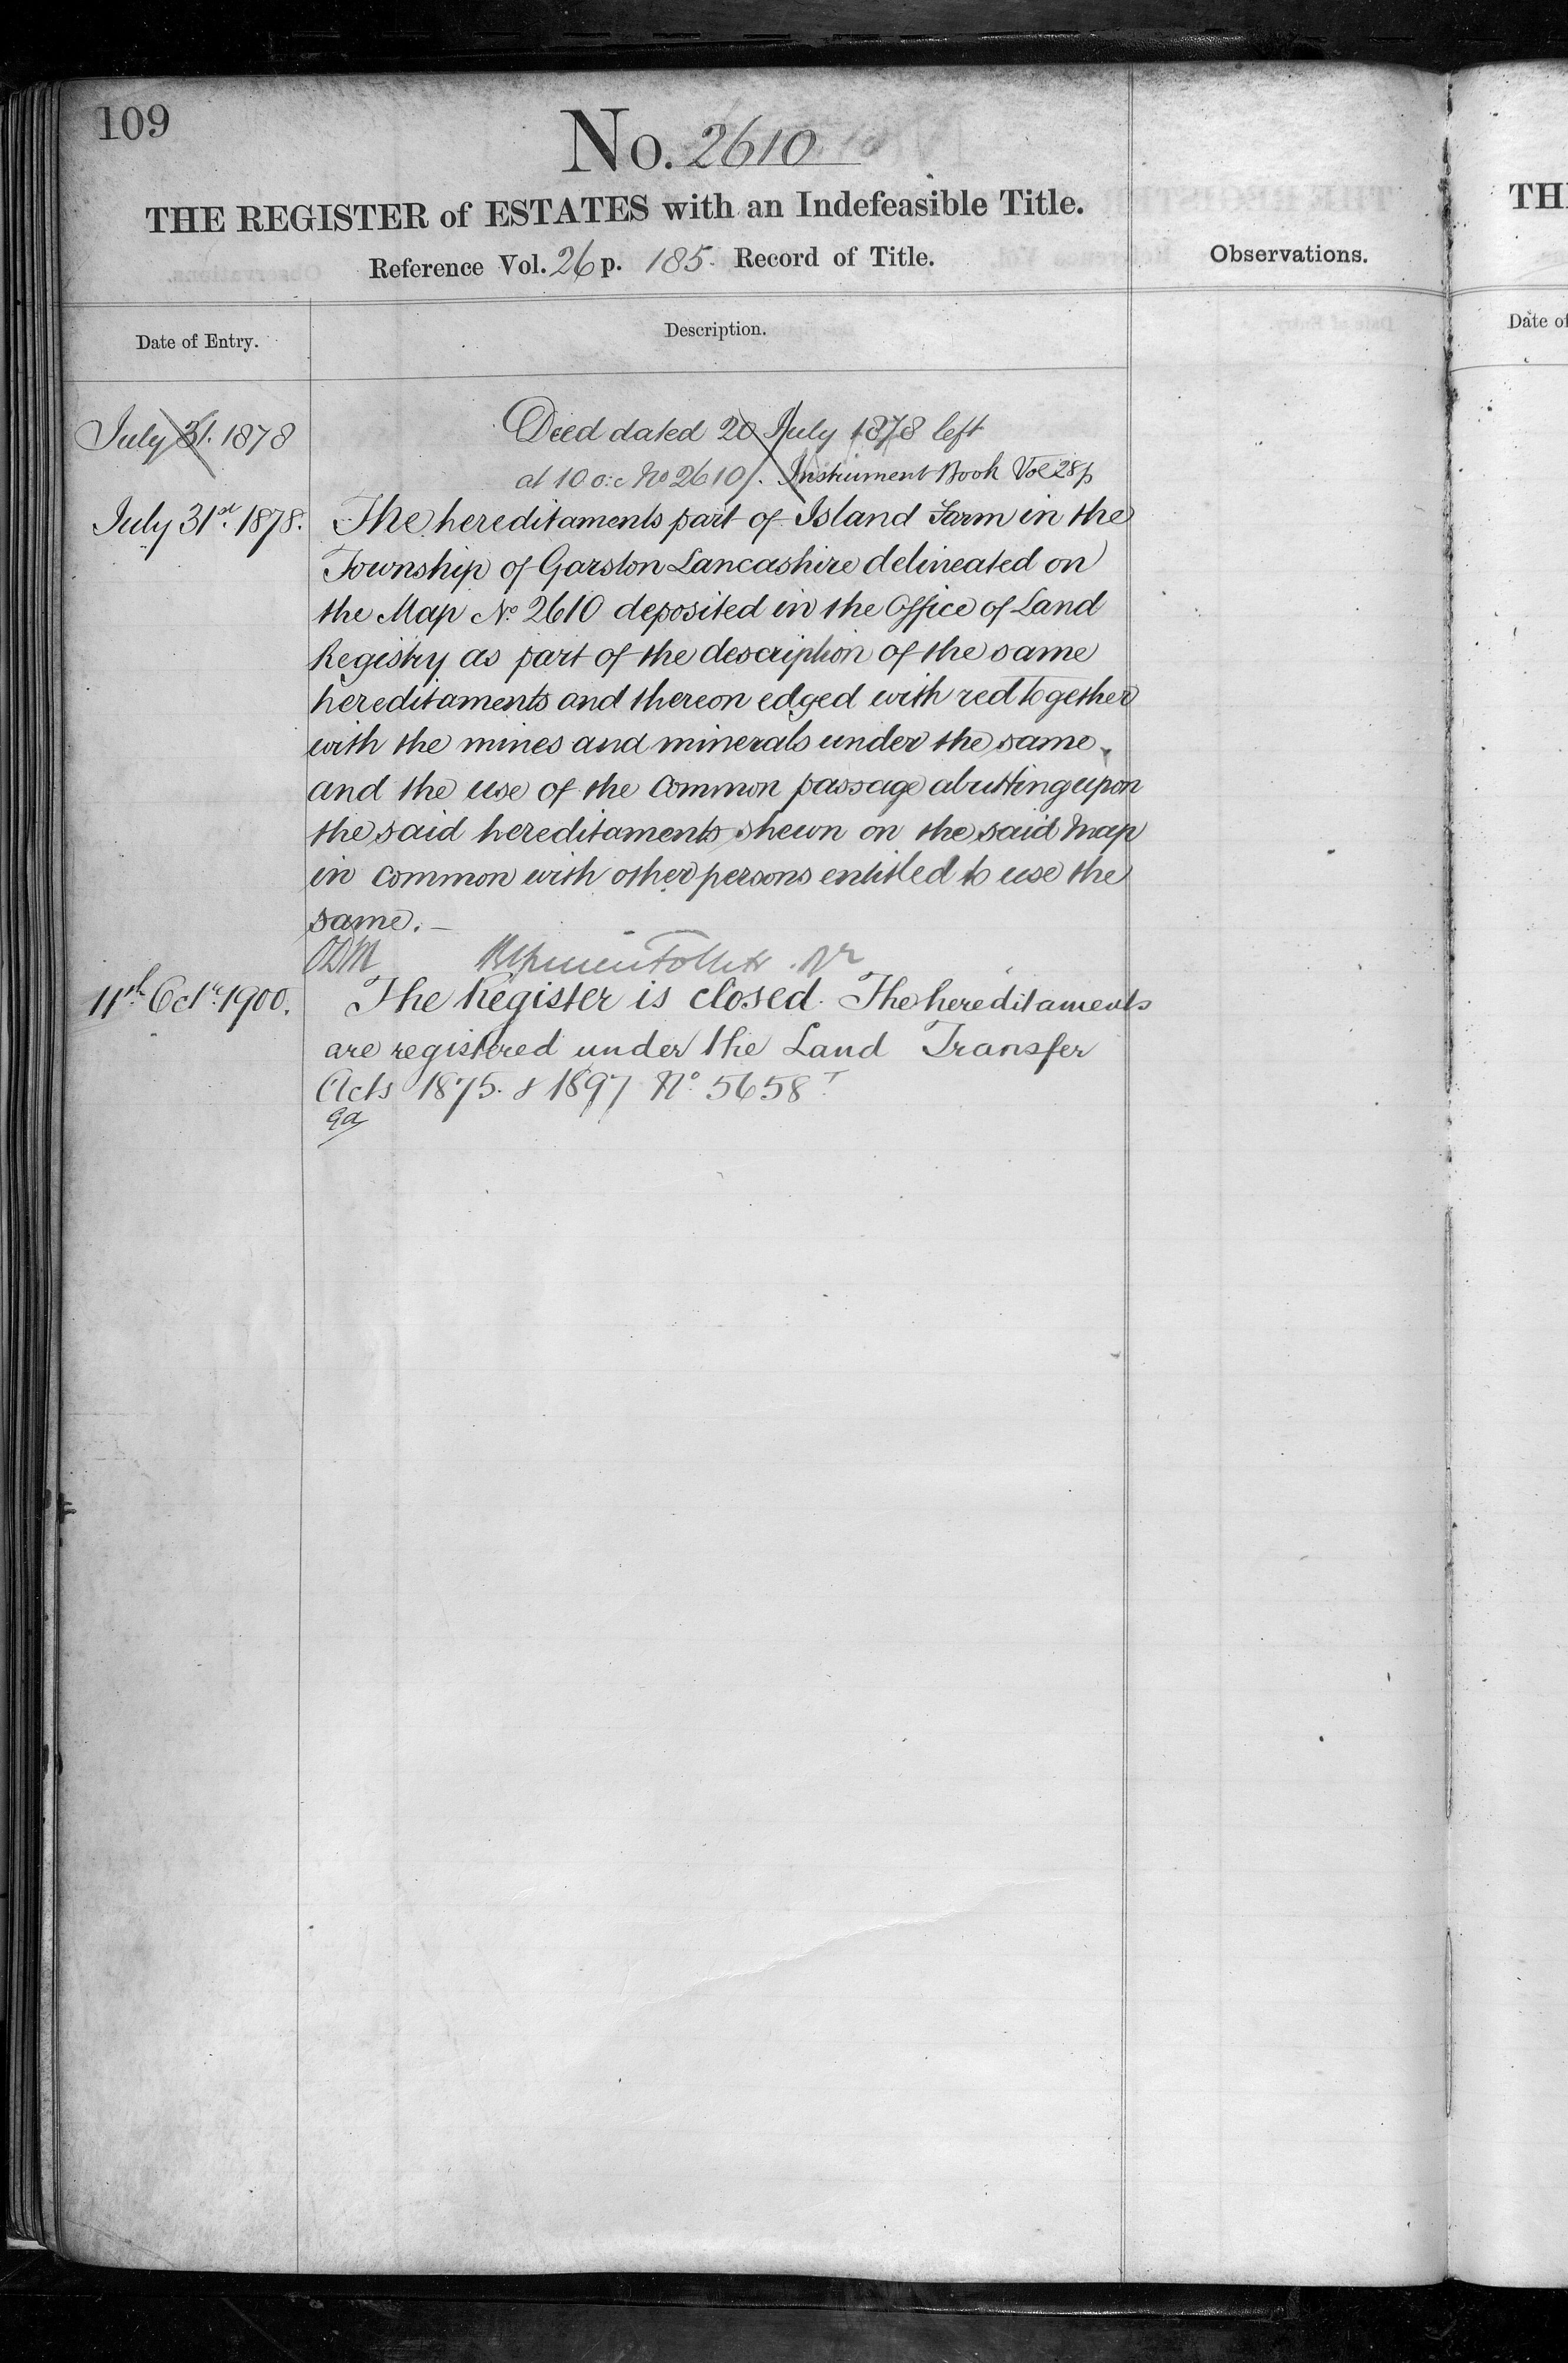 109
No. 2610
THE REGISTER of ESTATES with an Indefeasible Title.
Reference Vol. 26 p. 185. Record of Title.
Observations.
Date of Entry.
Description.
July 31. 1878
Deed dated 20 July 1878 left
at 10 o:c No 2610/. Instrument Book Vol 28 p
July 31st. 1878.
The hereditaments part of Island Farm in the
Township of Garston Lancashire delineated on
the Map No. 2610 deposited in the Office of Land
Registry as part of the description of the same
hereditaments and thereon edged with red together
with the mines and minerals under the same
and the use of the common passage abutting upon
the said hereditaments shewn on the said Map
in common with other persons entitled to use the
same. —
11th Octr. 1900.
The Register is closed. The hereditaments
are registered under the Land Transfer
Acts 1875. & 1897 No. 5658
TH
Date of